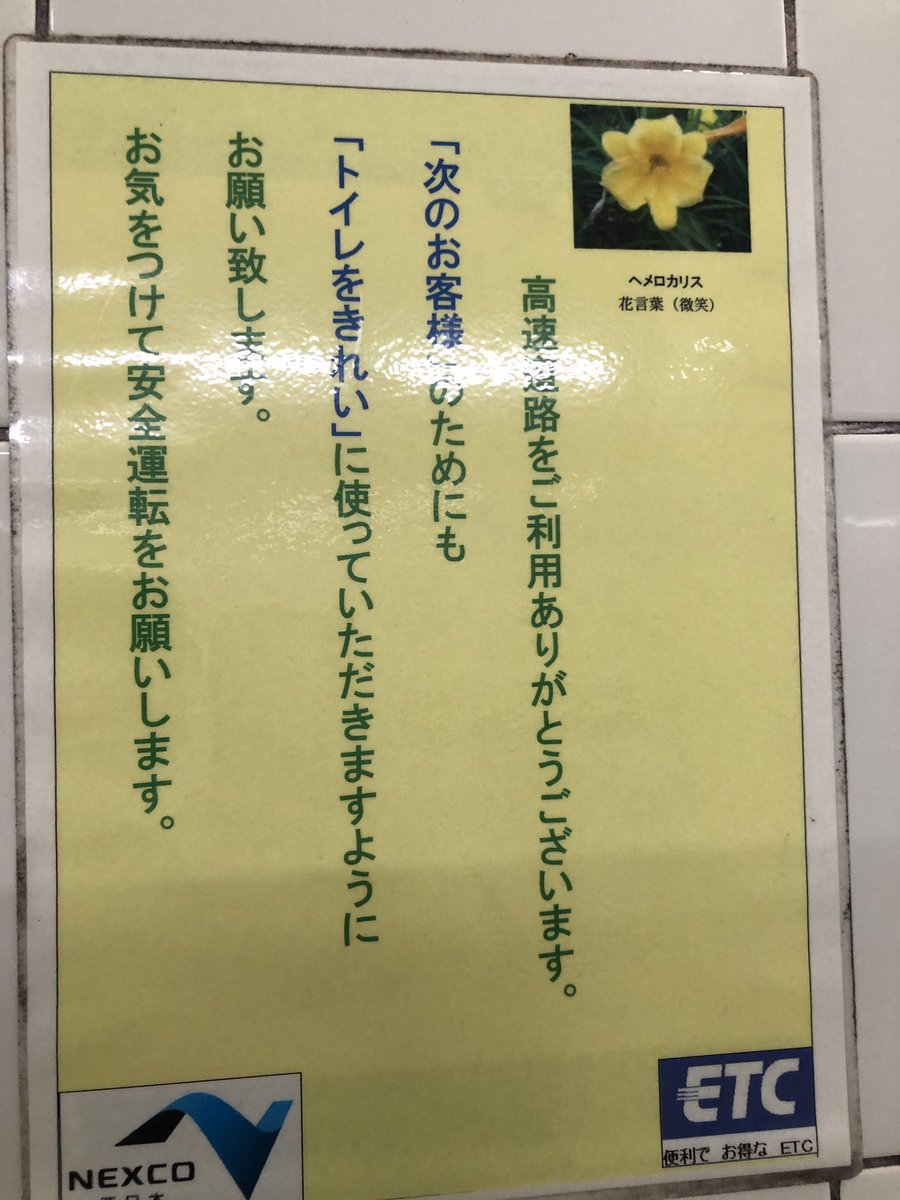 ヘメロカリス
花言葉（微笑）
高速道路をご利用ありがとうございます。
「次のお客様」のためにも
「トイレをきれい」に使っていただきますように
お願い致します。
お気をつけて安全運転をお願いします。
NEXCO
ETC
便利で お得な ETC